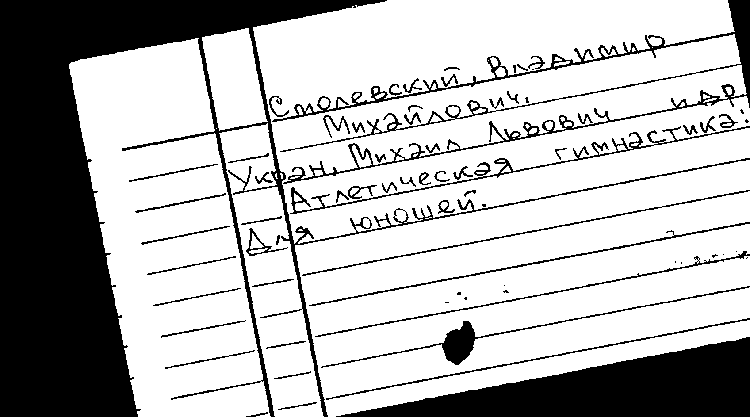 Столевский, Владимир
Михайлович,
Укран, Михаил Львович и др.
Атлетическая гимнастика:
Для юношей.